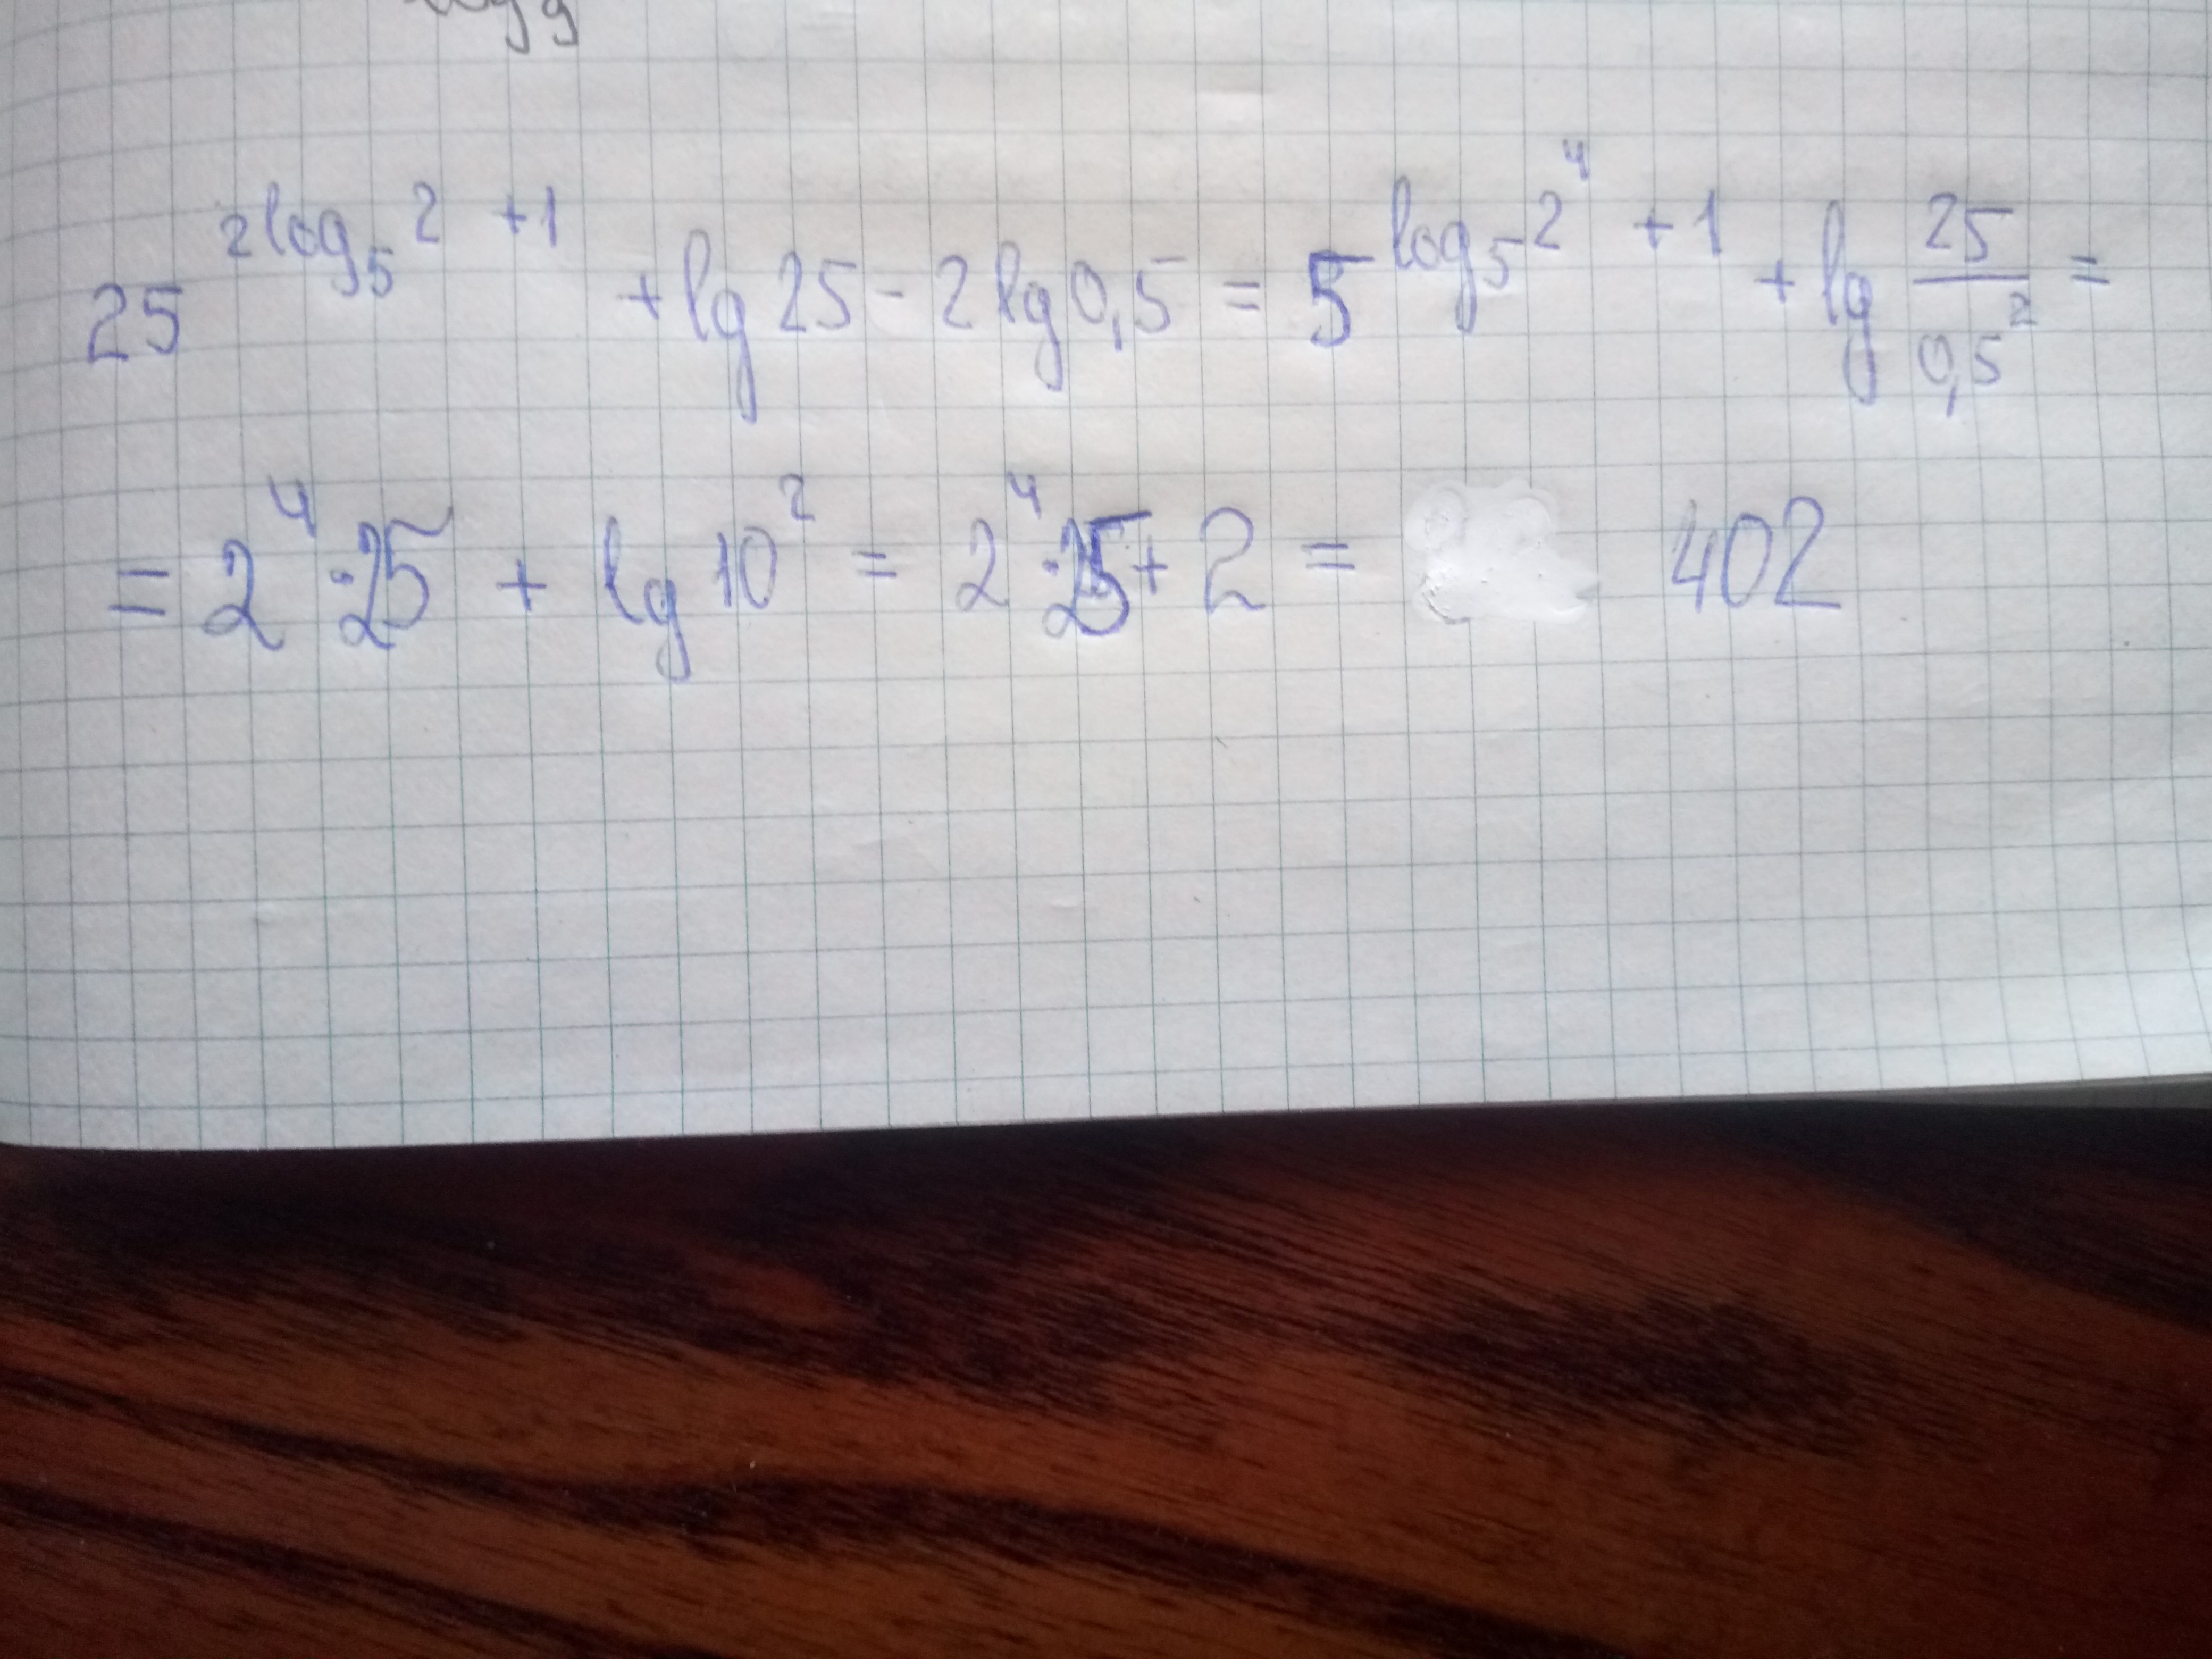 25^{2log_5 2 + 1} + lg 25 - 2 lg 0,5 = 5^{log_5 2^4 + 1} + lg \frac{25}{0,5^2} =
= 2^4 · 25 + lg 10^2 = 2^4 · 25 + 2 = 402